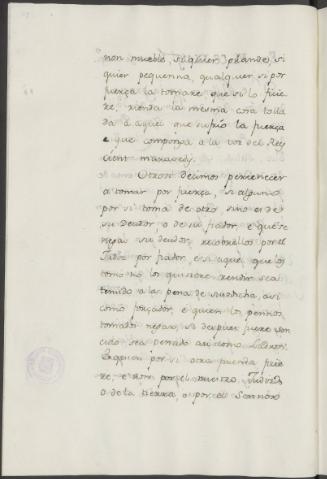 non mueble, siquier grande, si
quier pequenna, qualquier si por
fuerza la tomare que si lo ficie
re, rienda la mesma cosa tolli
da a aquel que sufrio la fuerza
e que componga a la voz del Rey
cient maravedis
Otrosi decimos pertenecer
a tomar por fuerza, si alguno
por si toma de otro sino es de
su deudor, o de su fiador, e que se
negas su deudor,
por fiador, e si aquel que los
tomo no los quisiere rendir sea
tenido a la pena de susodicha, asi
como forçador, e quien los pennos
tomador negar, si despues fuere ven
cido sea penado asi como
por si otra puenda ficie
re, e non por el nuestro
o de la tierra, o por el Sennor